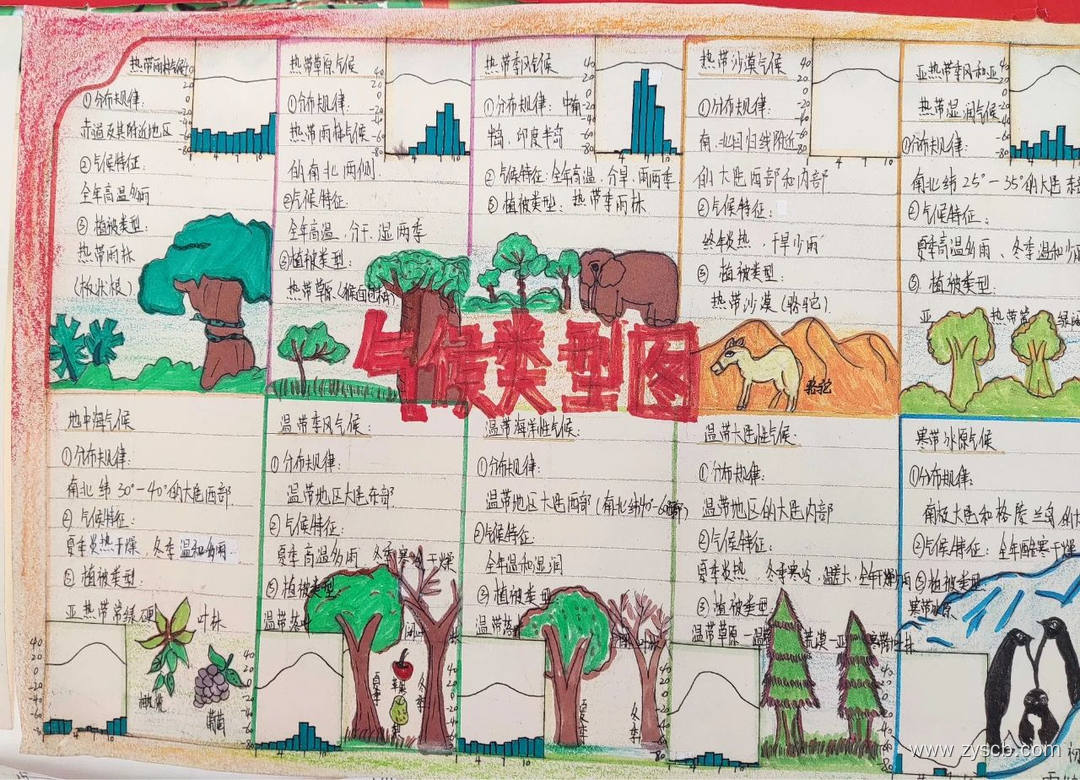 热带雨林气候
①分布规律:
赤道及其附近地区
②气候特征:
全年高温多雨
③植被类型:
热带雨林
(板状根)
热带草原气候
①分布规律:
热带雨林气候
的南北两侧.
②气候特征:
全年高温、分干、湿两季
③植被类型:
热带草原(猴面包树)
热带季风气候
①分布规律: 中南
半岛、印度半岛
②气候特征:全年高温、分旱、雨两季
③植被类型: 热带季雨林
热带沙漠气候
①分布规律:
南、北回归线附近
的大陆西部和内部.
②气候特征:
终年炎热、干旱少雨
③ 植被类型:
热带沙漠(骆驼).
骆驼
亚热带季风和亚
热带湿润气候
①分布规律:
南北纬25°-35°的大陆东
②气候特征:
夏季高温多雨、冬季温和少雨
③ 植被类型:
亚热带常绿
气候类型图
地中海气候
①分布规律:
南北纬30°-40°的大陆西部
② 气候特征:
夏季炎热干燥、冬季温和多雨
③ 植被类型:
亚热带常绿硬叶林
葡萄
温带季风气候:
①分布规律:
温带地区大陆东部.
②气候特征:
夏季高温多雨 冬季寒冷干燥
③植被类型:
温带落
夏季
苹果
冬季
温带海洋性气候:
①分布规律:
温带地区大陆西部(南北纬40°-60°
②气候特征:
全年温和湿润
③植被类型:
温带落
夏季
冬季
温带大陆性气候:
①分布规律:
温带地区的大陆内部
②气候特征:
夏季炎热、冬季寒冷、温差大、全年干燥少雨
③植被类型
温带草原-温 荒漠-亚寒带针叶林
寒带冰原气候
①分布规律:
南极大陆和格陵兰岛的大
②气候特征: 全年酷寒干燥
③植被类型
寒带冰原
www.zyscb.com